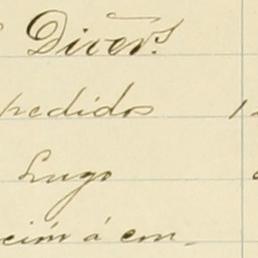 Divers.
pedidos 1
Lugo
ción á con_